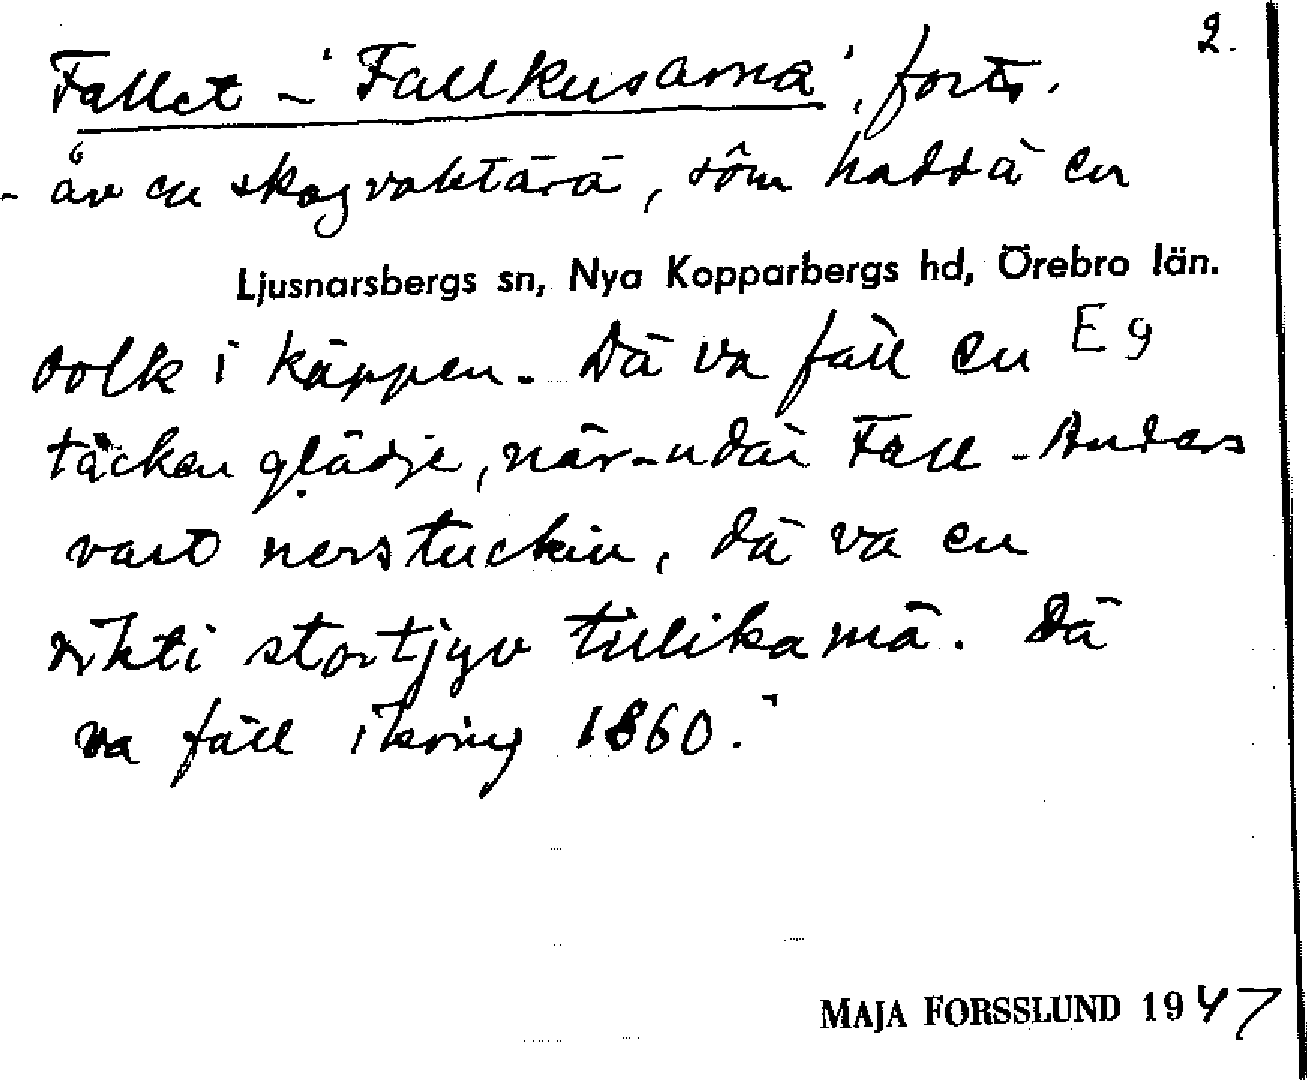 2.
Fallet - 'Fallkusarna', forts.
- åv en skogvaktärä, sôm haddä en
Ljusnarsbergs sn, Nya Kopparbergs hd, Örebro län.
dolk i käppen. Dä va fäll en E9
täcken glädje, när-n där Fall-Anders
vart nerstuckin, dä va en
rikti stortjyv tillika mä. Dä
va fäll ikring 1860."
MAJA FORSSLUND 1947